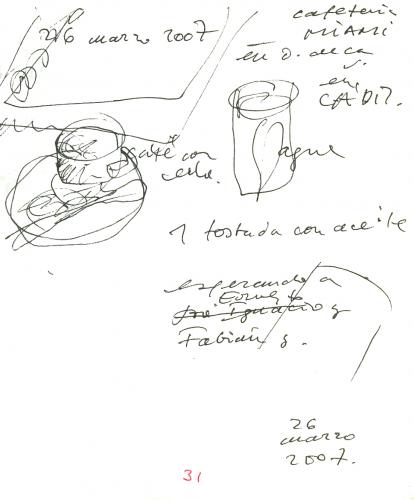 26 marzo 2007
cafetería
MIAMI
en
en
CADIZ.
café con
leche.
agua
1 tostada con aceite
esperando a
Ernesto
José Ignacio y
Fabián
26
marzo
2007.
31